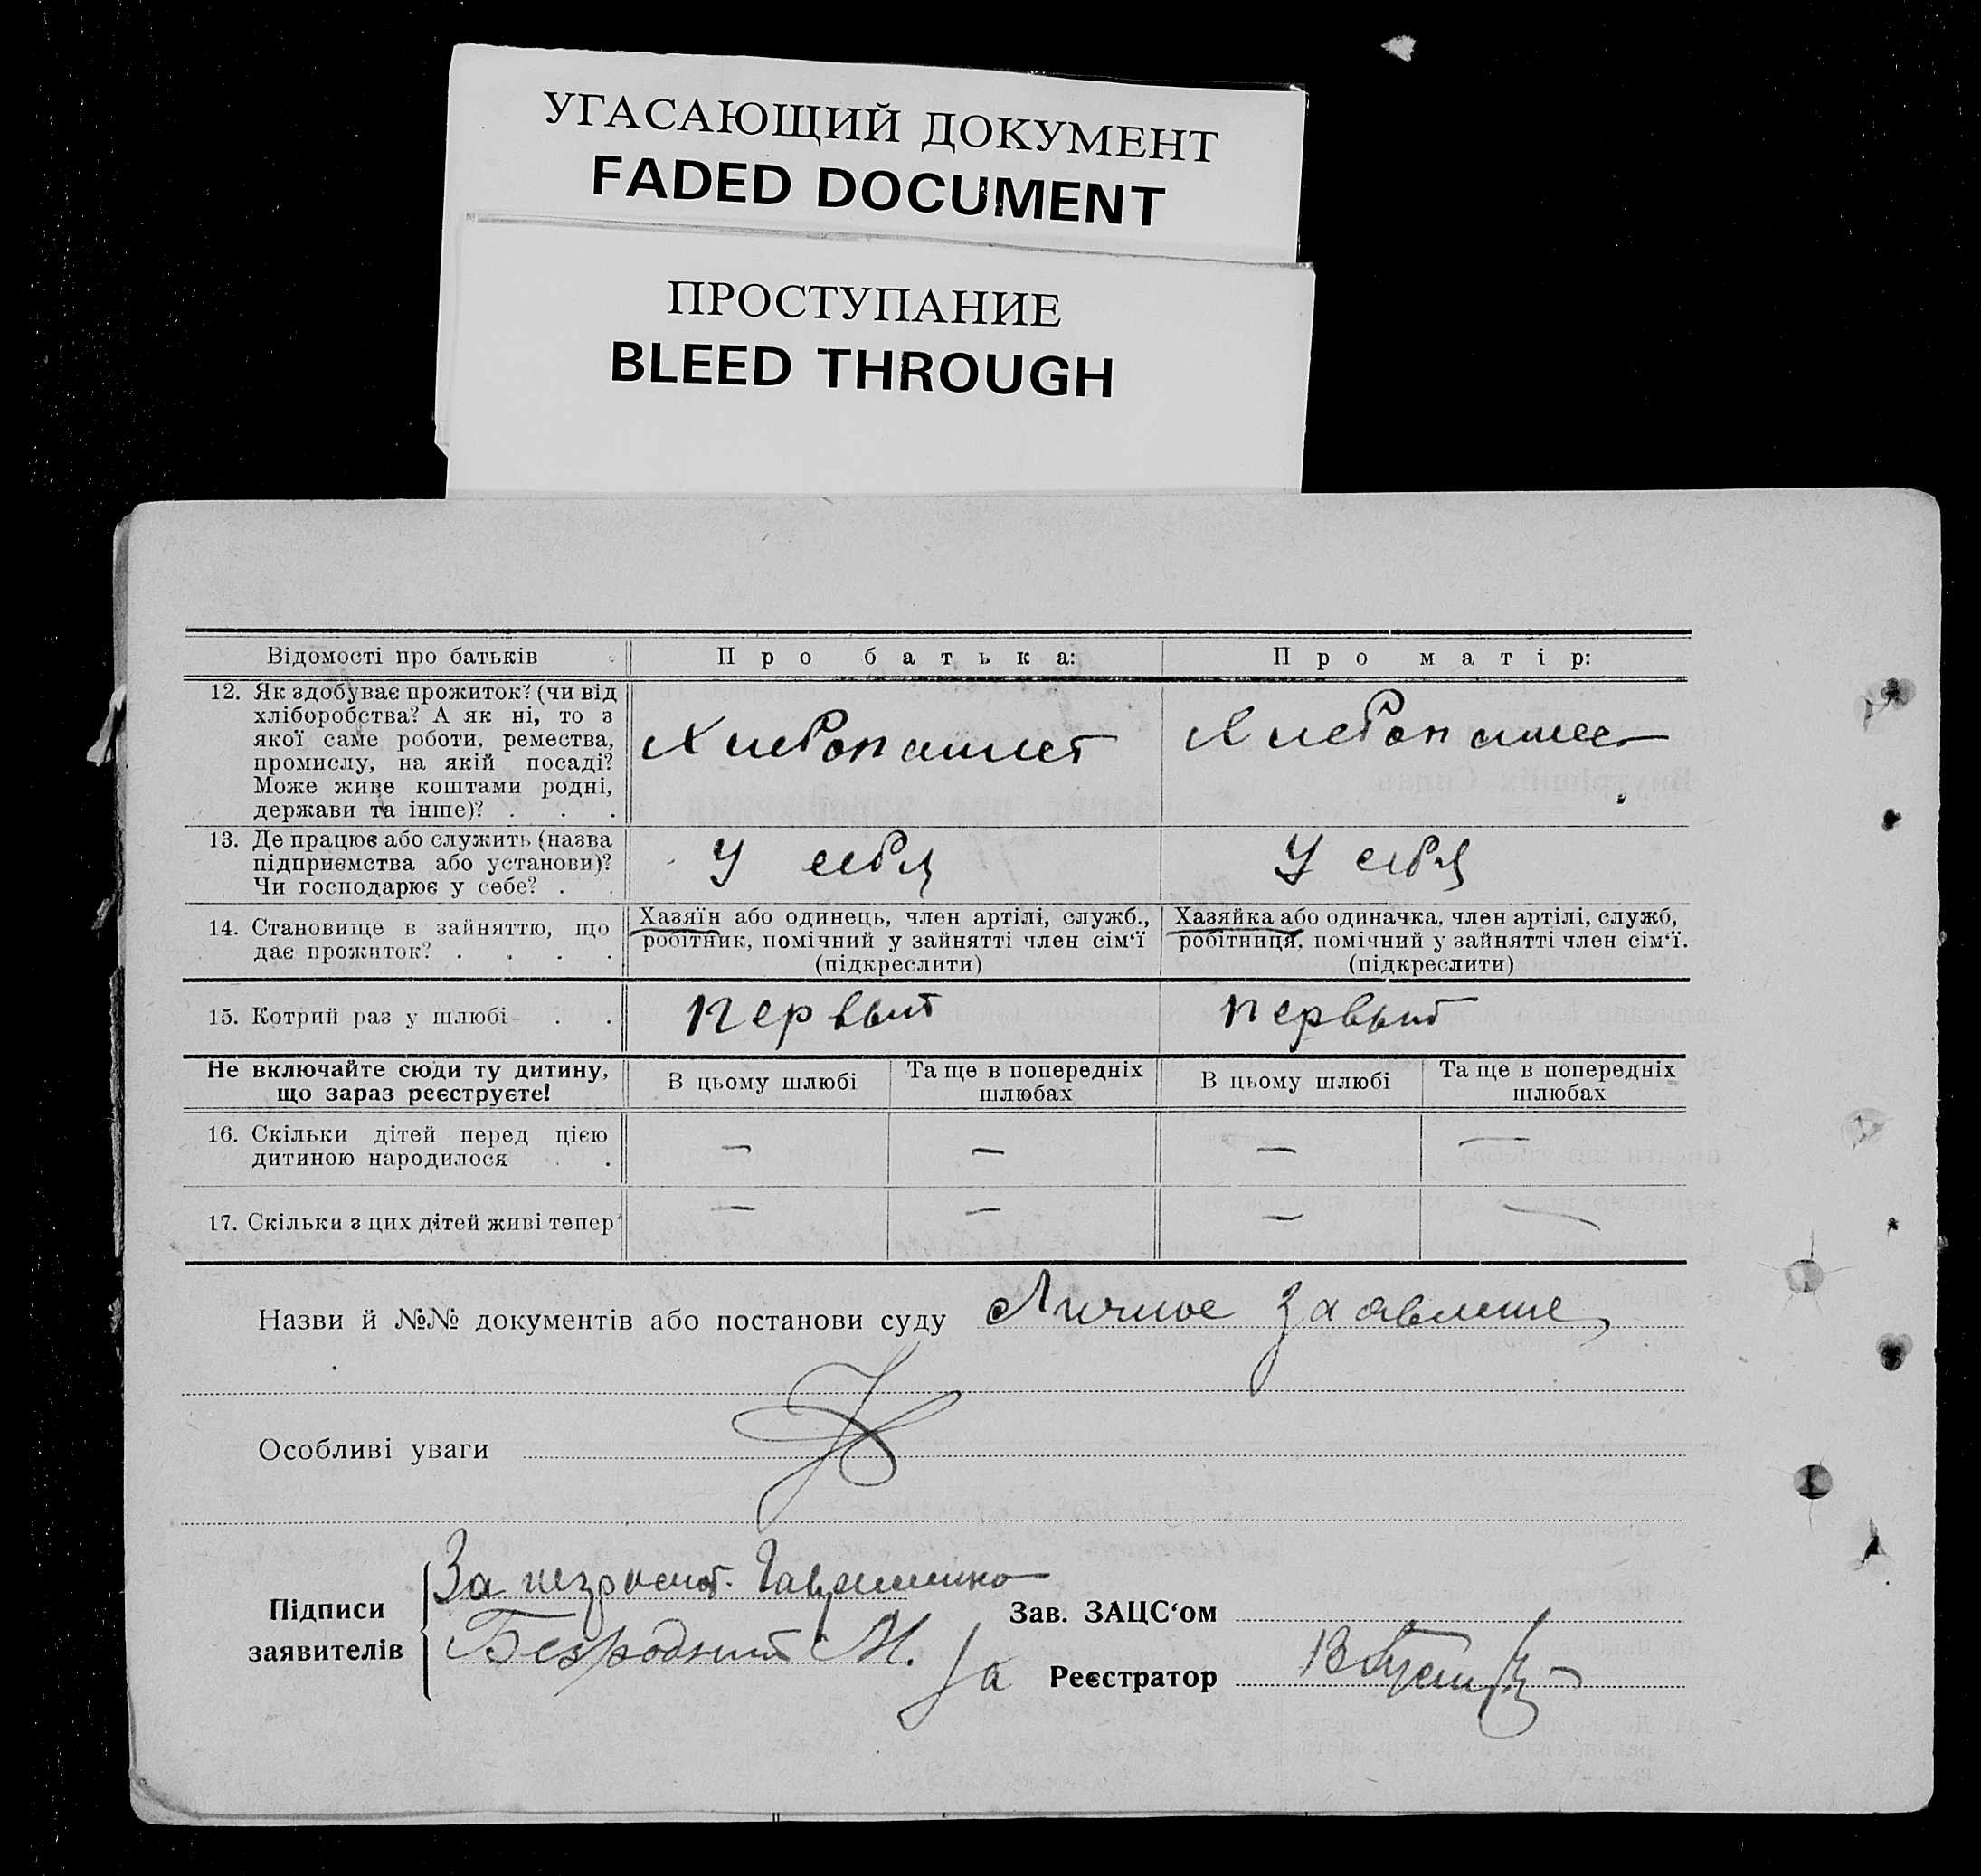 УГАСАЮЩИЙ ДОКУМЕНТ
FADED DOCUMENT
ПРОСТУПАНИЕ
BLEED THROUGH
Відомості про батьків Про батька: Про матір:
12. Як здобуває прожиток? (чи від
хліборобства? А як ні, то з
якої саме роботи, ремества,
промислу, на якій посаді?
Може живе коштами родні,
держави та інше)? . . .
Хлебопашест Хлебопашес
13. Де працює або служить (назва
підприємства або установи)?
Чи господарює у себе? . .
У себя У себя
14. Становище в зайняттю, що
дає прожиток? . . . .
Хазяїн або одинець, член артілі, служб.,
робітник, помічний у зайнятті член сім‘ї
(підкреслити)
Хазяйка або одиначка, член артілі, служб,
робітниця, помічний у зайнятті член сім‘ї.
(підкреслити)
15. Котрий раз у шлюбі . . первый первый
Не включайте сюди ту дитину,
що зараз реєструєте!
В цьому шлюбі Та ще в попередніх
шлюбах
В цьому шлюбі Та ще в попередніх
шлюбах
16. Скільки дітей перед цією
дитиною народилося . .
— — — —
17. Скільки з цих дітей живі тепер — — — —
Назви й №№ документів або постанови суду Личное заявление
Особливі уваги
Підписи
заявителів
За неграмот.
Безродний М.
Зав. ЗАЦС‘ом
За Реєстратор